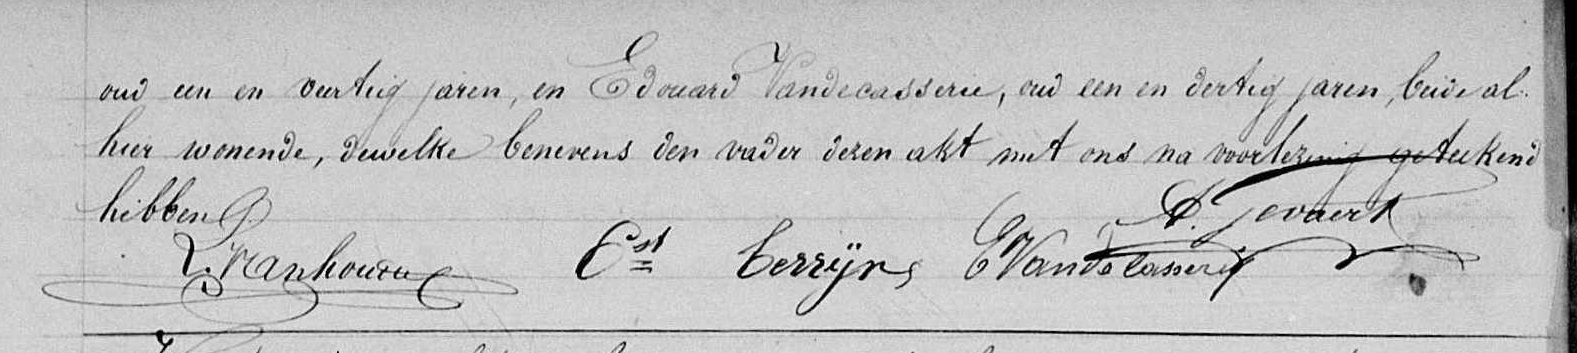 oud een en veertig jaren, en Edouard Vandecasserie, oud een en dertig jaren, beide al-
hier wonende, dewelke benevens den vader dezen akt met ons na voorlezing geteekend
hebben.
A. Gevaert
Cst Cerrÿns EVandecasserie